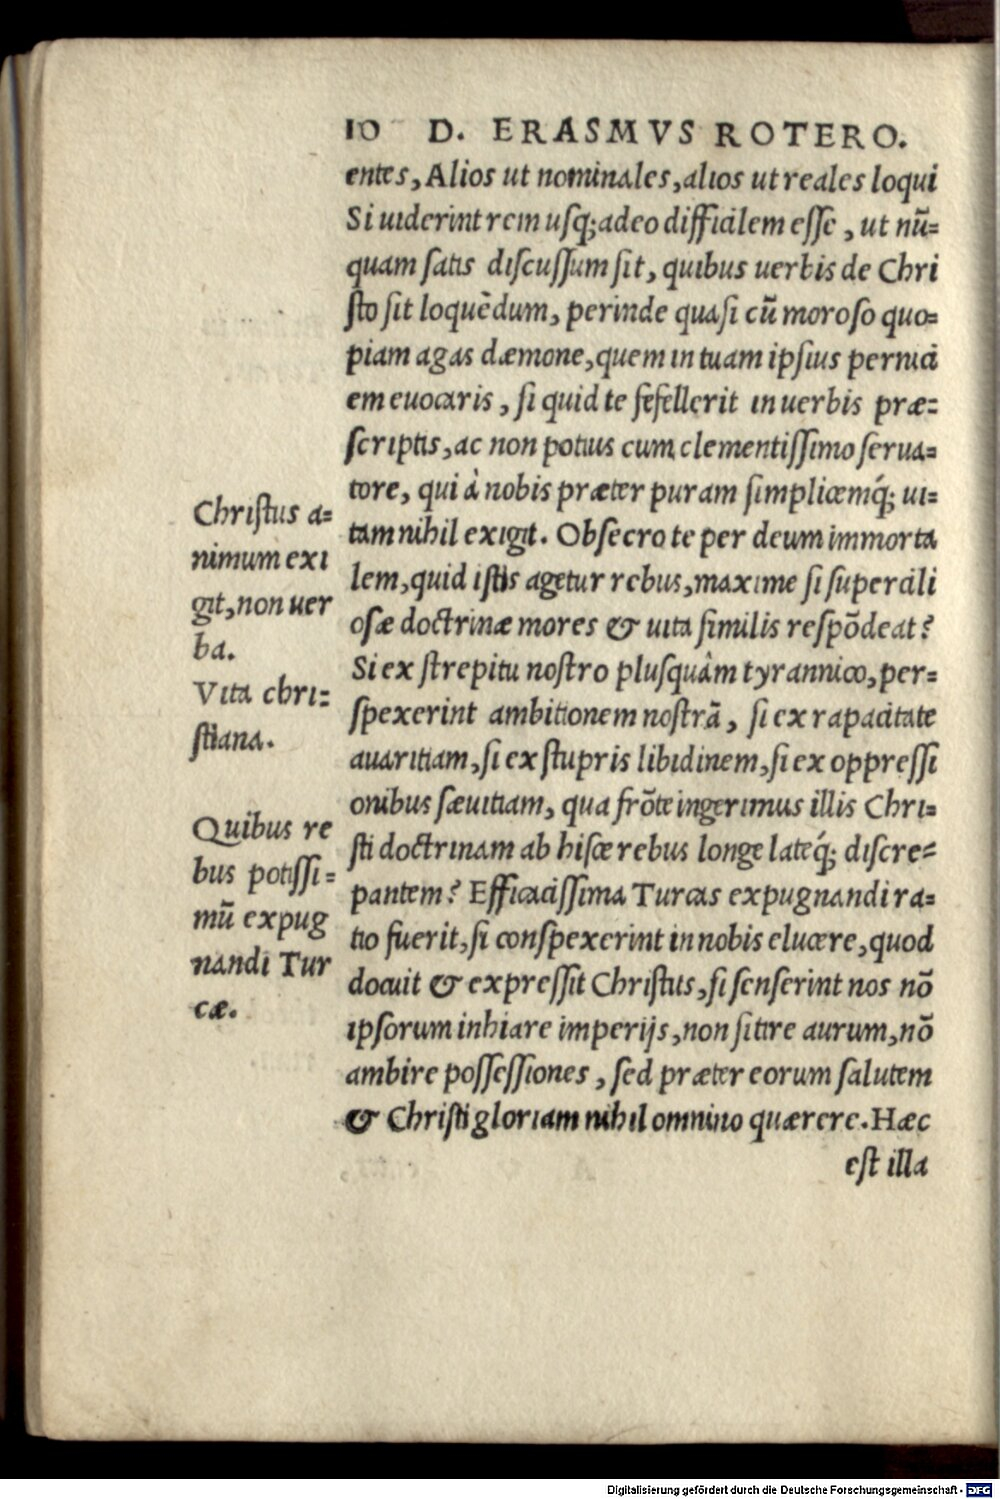 10 D. ERASMVS ROTERO.
entes, Alios ut nominales, alios ut reales loqui
Si uiderint rem usq; adeo difficilem esse, ut nū=
quam satis discussum sit, quibus uerbis de Chri
sto sit loquēdum, perinde quasi cū moroso quo=
piam agas dæmone, quem in tuam ipsius pernici
em euocaris, si quid te fefellerit in uerbis præ=
scriptis, ac non potius cum clementissimo serua=
tore, qui à nobis præter puram simplicemq́; ui=
tam nihil exigit. Obsecro te per deum immorta
lem, quid istis agetur rebus, maxime si supercili
osæ doctrinæ mores & uita similis respōdeat?
Si ex strepitu nostro plusquàm tyrannico, per=
spexerint ambitionem nostrā, si ex rapacitate
auaritiam, si ex stupris libidinem, si ex oppressi
onibus sæuitiam, qua frōte ingerimus illis Chri=
sti doctrinam ab hisce rebus longe lateq́; discre=
pantem? Efficacissima Turcas expugnandi ra=
tio fuerit, si conspexerint in nobis elucere, quod
docuit & expressit Christus, si senserint nos nō
ipsorum inhiare imperijs, non sitire aurum, nō
ambire possessiones, sed præter eorum salutem
& Christi gloriam nihil omnino quærere. Hæc
est illa
Christus a=
nimum exi
git, non uer
ba.
Vita chri=
stiana.
Quibus re
bus potissi=
mū expug
nandi Tur
cæ.
Digitalisierung gefördert durch die Deutsche Forschungsgemeinschaft - DFG